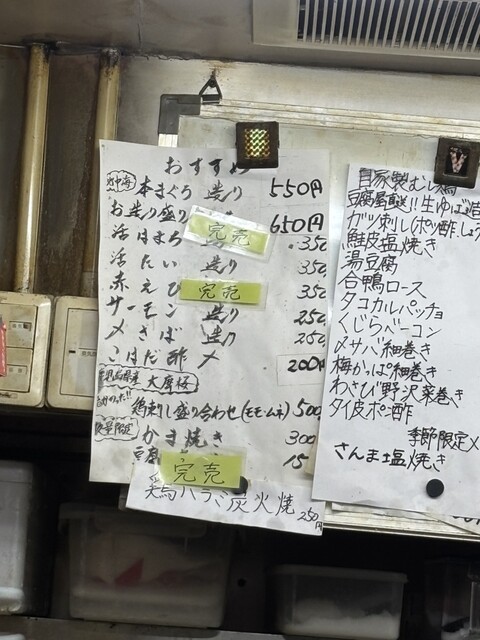 おすすめ
地中海 本まぐろ 造り 550円
お造り盛り 650円
完売
活はまち 350
活たい 造り 350
赤えび 完売 350
サーモン 造り 250
〆さば 造り 250
こはだ酢〆 200円
鹿児島県産 大摩桜
鶏刺し盛り合わせ(モモ・ムネ) 500
数量限定 かま焼き 300
豆腐 15
完売
ハラミ炭火焼 250円
自家製むし鶏
豆腐屋直送!!生ゆば
ガツ刺し(ポン酢.しょう
鮭皮塩焼き
湯豆腐
合鴨ロース
タコカルパッチョ
くじらベーコン
〆サバ細巻き
梅かっぱ細巻き
わさび野沢菜巻き
タイ皮ポン酢
季節限定メ
さんま塩焼き